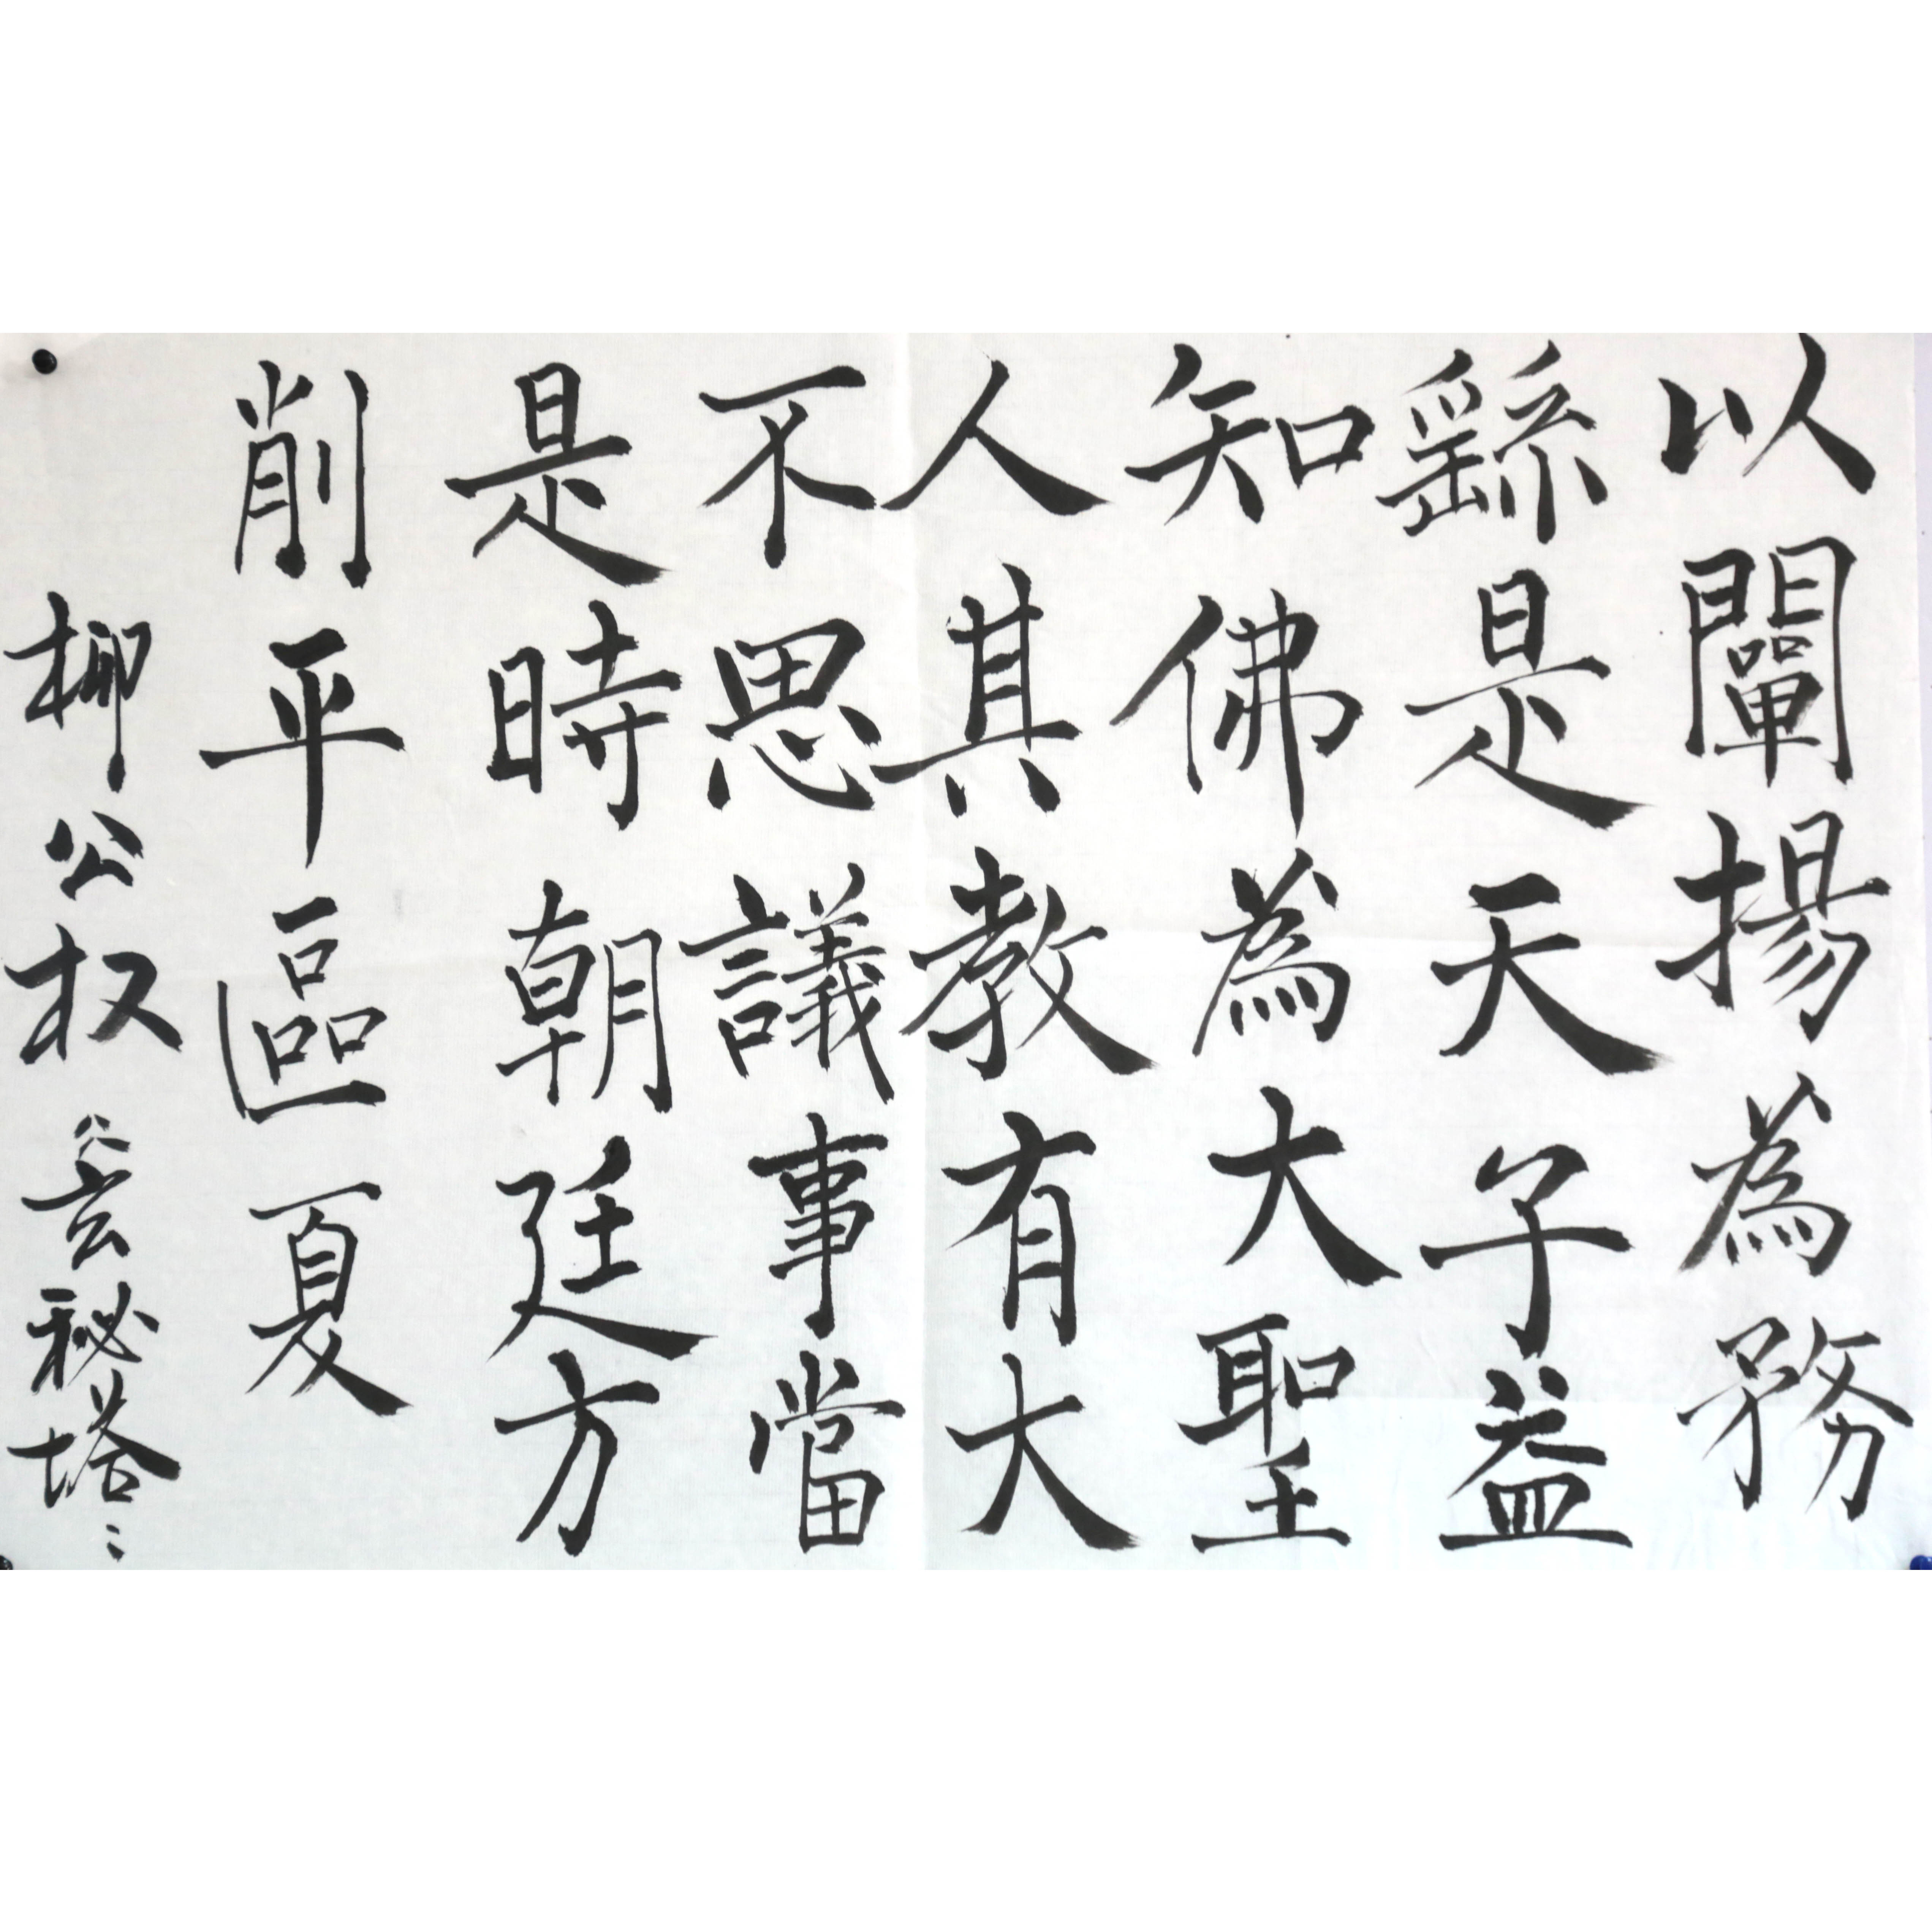 以闡揚為務
繇是天子益
知佛為大聖
人其教有大
不思議事當
是時朝廷方
削平區夏
柳公权玄秘塔